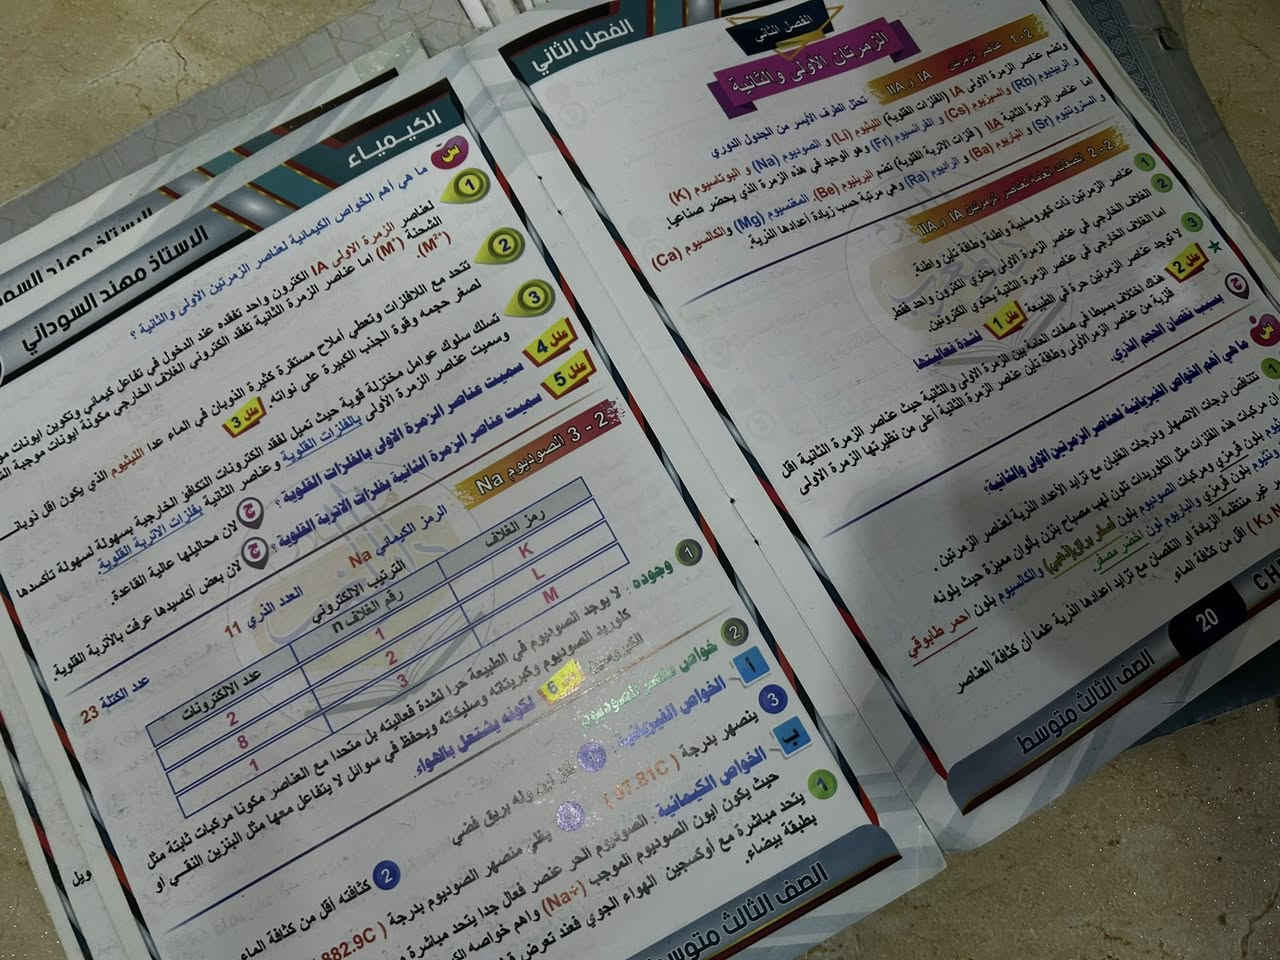 الفصل الثاني
الفصل الثاني
الزمرتان الاولى و الثانية
2-1 عناصر الزمرتين IA و IIA
تحتل الطرف الايسر من الجدول الدوري
وتضم عناصر الزمرة الاولى IA (الفلزات القلوية) الليثيوم (Li) و الصوديوم (Na) و البوتاسيوم (K)
و الربيديوم (Rb) والسيزيوم (Cs) و الفرانسيوم (Fr) وهو الوحيد في هذه الزمرة الذي يحضر صناعيا.
اما عناصر الزمرة الثانية IIA ( فلزات الاتربة القلوية) تضم البريليوم (Be) المغنسيوم (Mg) والكالسيوم (Ca)
و السترونتيوم (Sr) و الباريوم (Ba) و الراديوم (Ra) وهي مرتبة حسب زيادة أعدادها الذرية.
2-2 الصفات العامة لعناصر الزمرتين IA و IIA
1 عناصر الزمرتين ذات كهروسلبية واطئة وطاقة تأين واطئة.
2 الغلاف الخارجي في عناصر الزمرة الاولى يحتوي الكترون واحد فقط
اما الغلاف الخارجي في عناصر الزمرة الثانية يحتوي الكترونين.
3 لا توجد عناصر الزمرتين حرة في الطبيعة علل 1 لشدة فعاليتها
علل 2 هناك اختلاف بسيط في صفات العامة بين الزمرة الاولى والثانية حيث عناصر الزمرة الثانية اقل
فلزية من عناصر الزمرة الاولى وطاقة تاين عناصر الزمرة الثانية أعلى من نظيرتها الزمرة الاولى
ج بسبب نقصان الحجم الذري.
س ما هي أهم الخواص الفيزيائية لعناصر الزمرتين الاولى والثانية؟
1 تتناقص درجات الانصهار ودرجات الغليان مع تزايد الأعداد الذرية لعناصر الزمرتين .
ان مركبات هذه الفلزات مثل الكلوريدات تلون لهب مصباح بنزن بألوان مميزة حيث يلونه
بلون قرمزي ومركبات الصوديوم بلون اصفر براق(ذهبي) والكالسيوم بلون احمر طابوقي
بلون قرمزي والباريوم لون اخضر مصفر
غير منتظمة الزيادة أو النقصان مع تزايد أعدادها الذرية علما أن كثافة العناصر
اقل من كثافة الماء.
20
الصف الثالث متوسط
الكيمياء
الاستاذ مهند السوداني
س ما هي أهم الخواص الكيميائية لعناصر الزمرتين الاولى والثانية ؟
1 لعناصر الزمرة الاولى IA الكترون واحد تفقده عند الدخول في تفاعل كيميائي وتكوين ايونات
الشحنة (M⁺) اما عناصر الزمرة الثانية تفقد الكتروني الغلاف الخارجي مكونة ايونات موجبة
(M²⁺).
2 تتحد مع اللافلزات وتعطي أملاح مستقرة كثيرة الذوبان في الماء عدا الليثيوم الذي يكون اقل
لصغر حجمه وقوة الجذب الكبيرة على نواته علل 3
3 تسلك سلوك عوامل مختزلة قوية حيث تميل لفقد الكترونات التكافؤ الخارجية بسهولة لسهولة تأكسدها
وسميت عناصر الزمرة الأولى بالفلزات القلوية و عناصر الثانية بفلزات الأتربة القلوية.
علل 4 سميت عناصر الزمرة الاولى بالفلزات القلوية ؟ ج لان محاليلها عالية القاعدة.
علل 5 سميت عناصر الزمرة الثانية بفلزات الاتربة القلوية ؟ ج لان بعض أكاسيدها عرفت بالأتربة القلوية.
2 - 3 الصوديوم Na
الرمز الكيميائي Na العدد الذري 11 عدد الكتلة 23
الترتيب الالكتروني
رمز الغلاف رقم الغلاف n عدد الالكترونات
K 1 2
L 2 8
M 3 1
1 وجوده : لا يوجد الصوديوم في الطبيعة حرا لشدة فعاليته بل متحدا مع العناصر مكونا مركبات ثابتة مثل
كلوريد الصوديوم وكبريتاته وسليكاته ويحفظ في سوائل لا يتفاعل معها مثل البنزين النقي أو
6 لكونه يشتعل بالهواء.
2 خواص عنصر الصوديوم
أ الخواص الفيزيائية وله بريق فضي 2 كثافته أقل من كثافة الماء
3 ينصهر بدرجة (97.81C) يغلي منصهر الصوديوم بدرجة (882.9C
ب الخواص الكيميائية : الصوديوم الحر عنصر فعال جدا يتحد مباشرة
حيث يكون ايون الصوديوم الموجب (Na+) واهم خواصه
1 يتحد مباشرة مع أوكسجين الهواء الجوي فعند تعرض
بطبقة بيضاء.
الصف الثالث متوسط